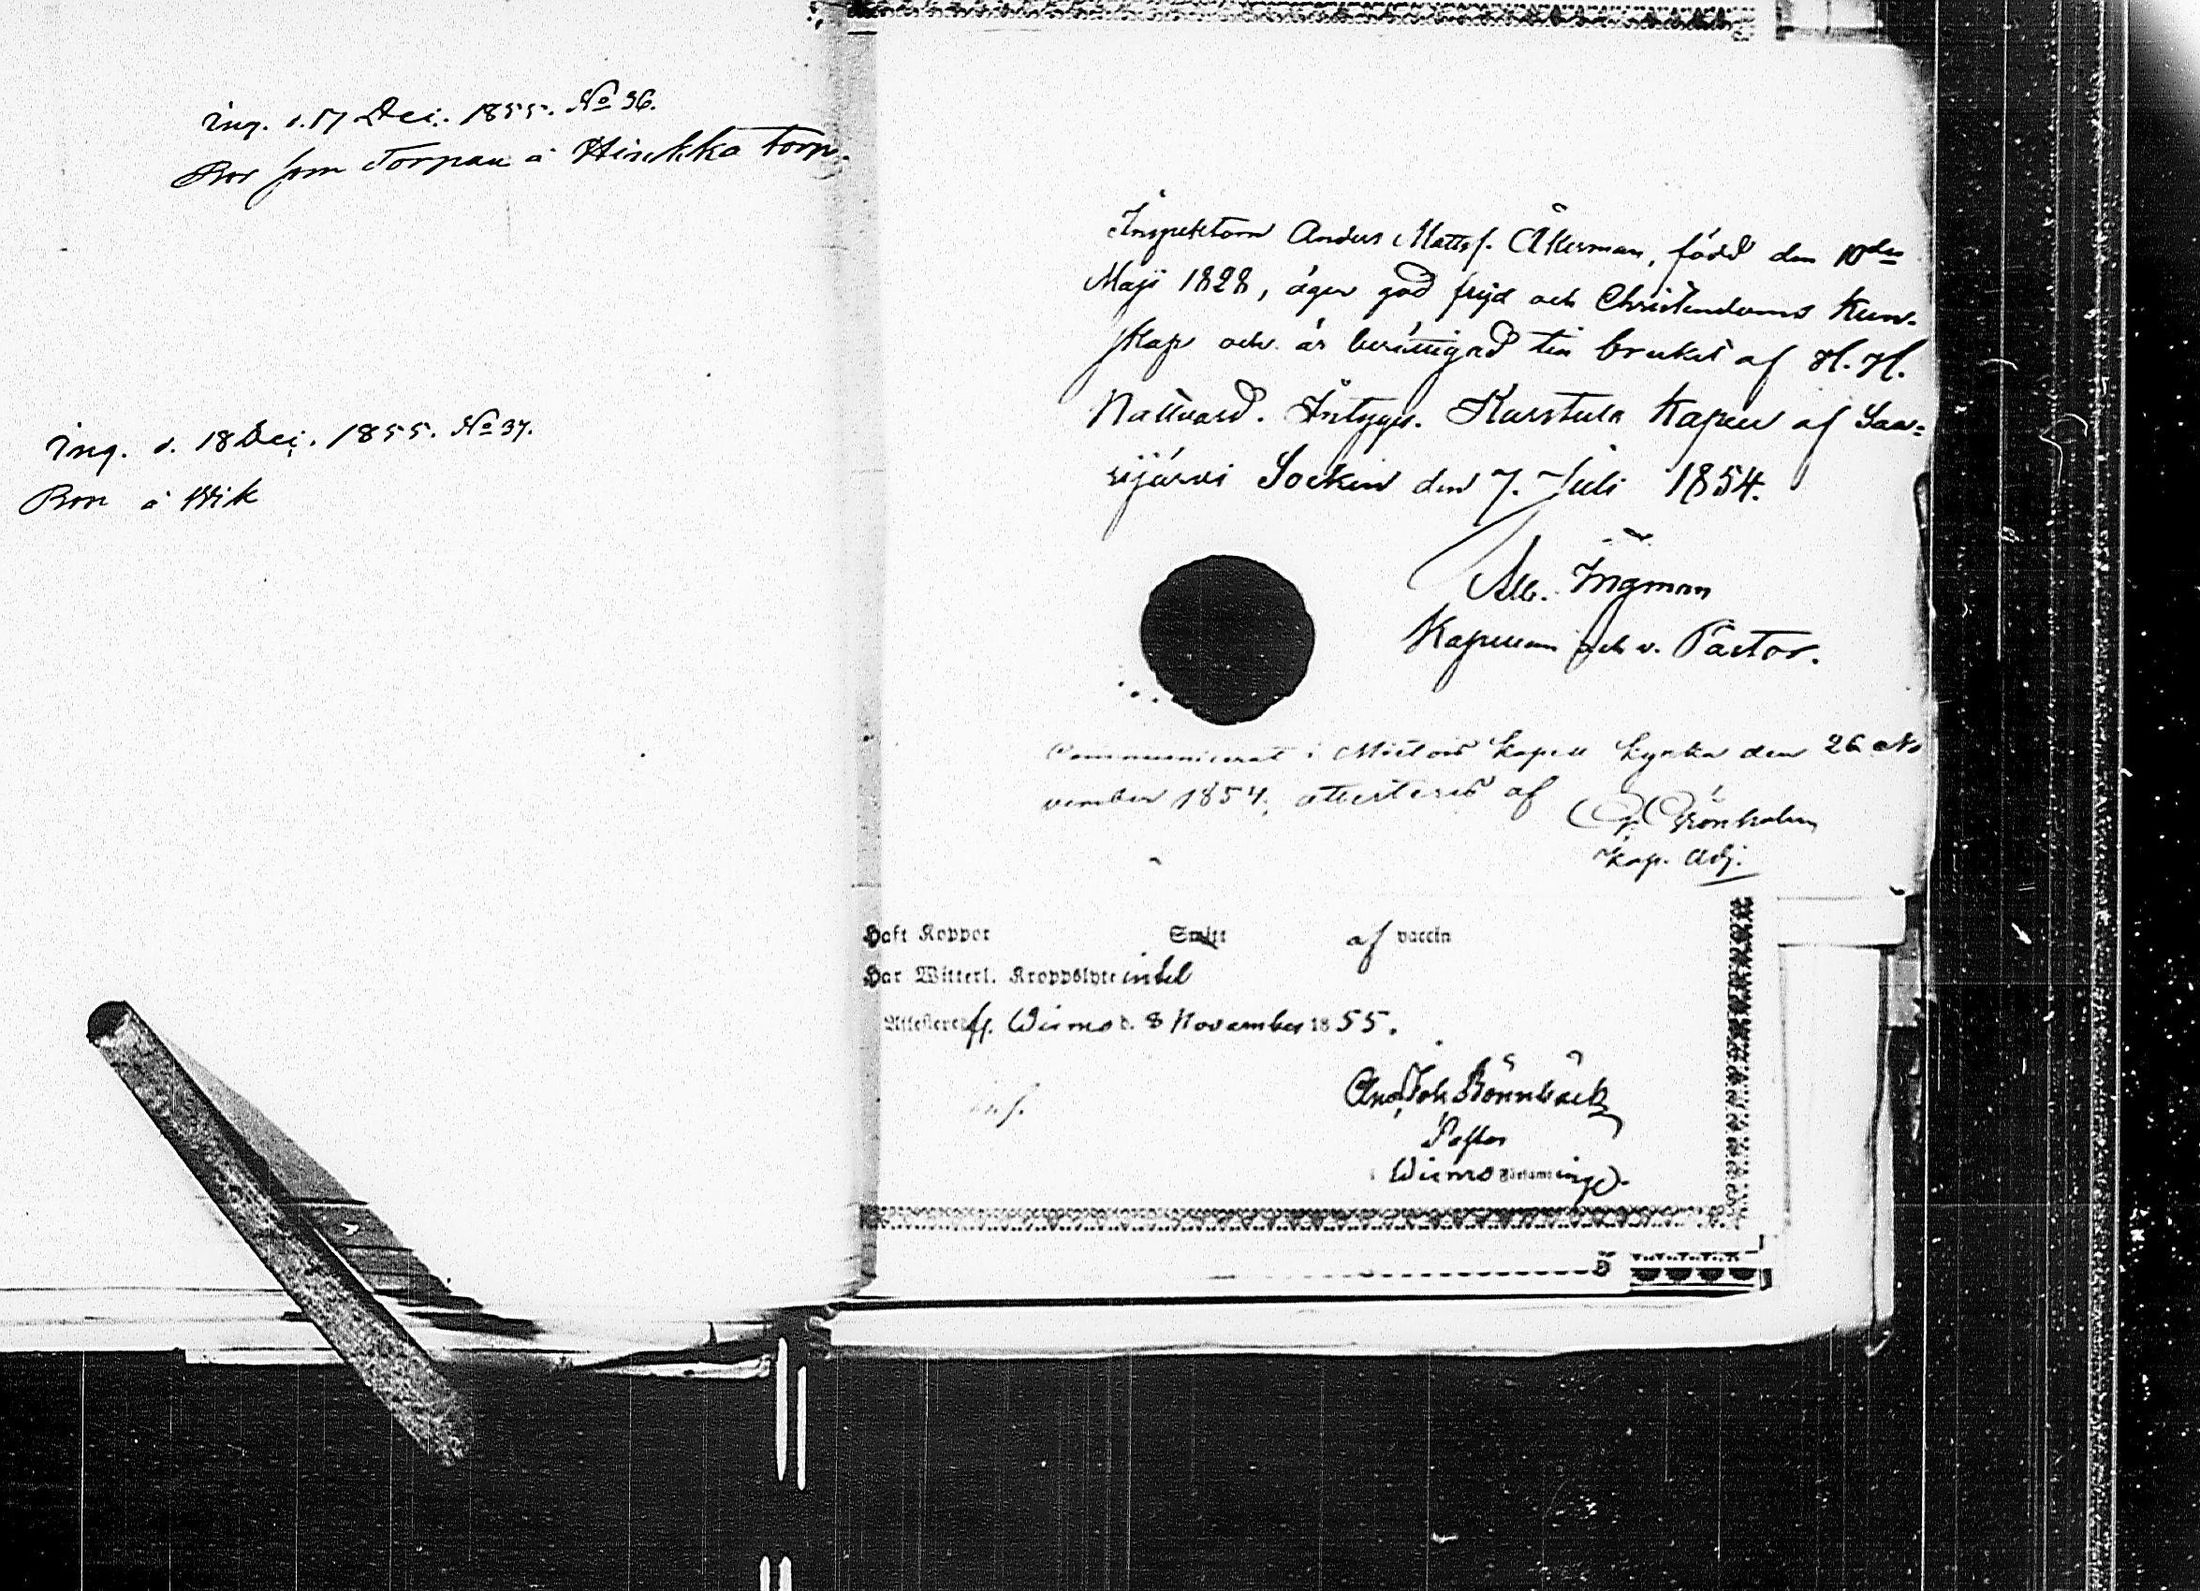 ing. d. 17 Dec. 1855. No 36.
Bor som Torpare å Hirskka torp.
ing. d. 18 Dec. 1855. No 37.
Bor å Wik
Inspektorn Anders Mattsf. Åkerman, född den 10de
Maji 1828, äger god frejd och Christendoms kun-
skap och är berättigad till bruket af H. H.
Nattvard. Intygar. Karstula Kapell af Saa-
rijärvi Socken den 7. Juli 1854.
Alb. Ingman
Kapellan och v. Pastor.
Communicerat i Mietois kapell kyrka den 26 No
vember 1854, attesteras af
Grönholm
Kap. Adj.
Haft Koppor Smitt af vaccin
Har Witterl. Kroppslyte intet
Attesteras Wirmo d. 8 November 1855.
And. Joh. Rönnbäck
Pastor
i Wirmo Församling